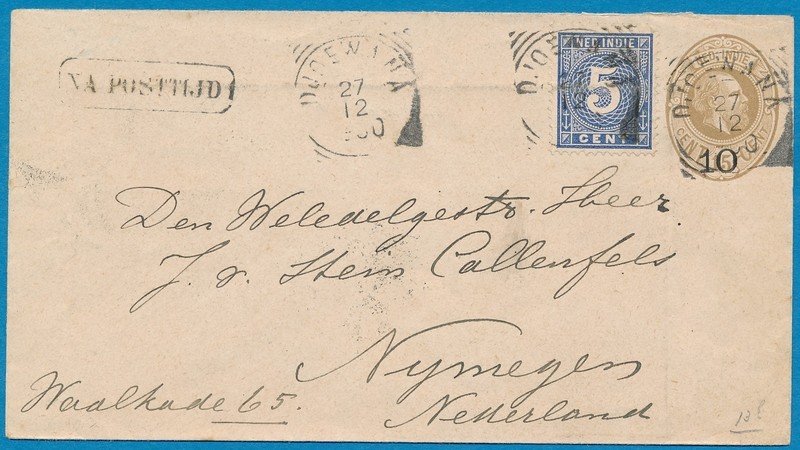 NA POSTTIJD
DJOEWANA
27
12
NED. INDIE
5
CENT
DJOEWANA
DJOEWANA
27
12
CENT 15 CENT
10
Den Weledelgestr. Heer
J. v. Stein Callenfels
Nymegen
Waalkade 65.
Nederland